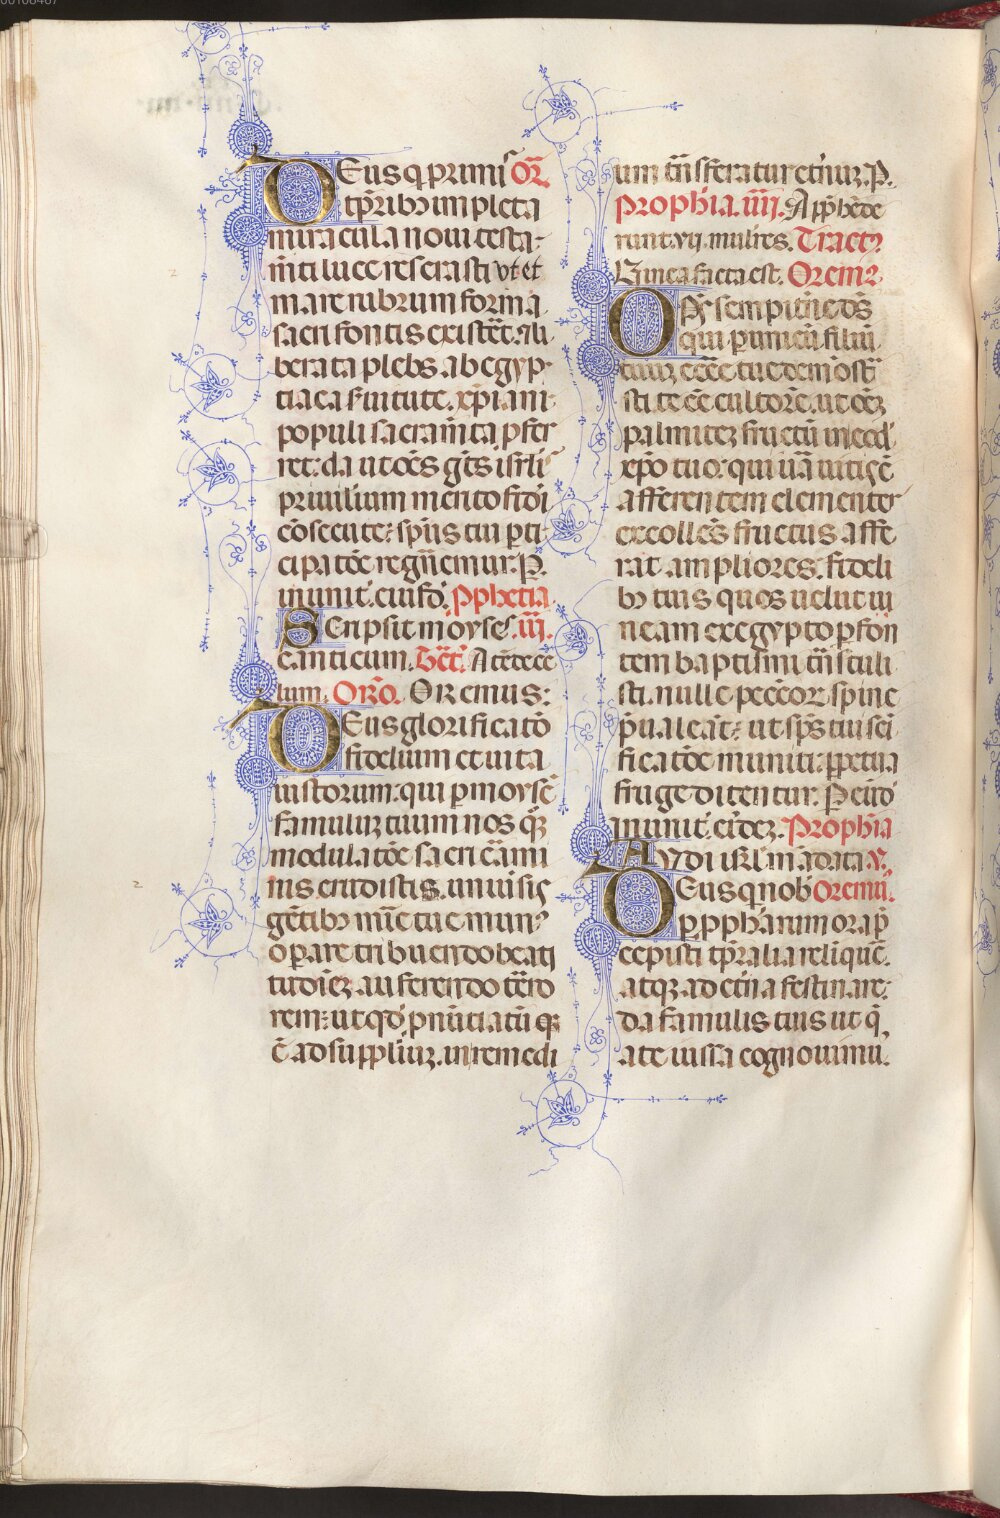 Deus q primis Or̄.
tp̄ribꝫ impleta
miracula noui testa-
m̄ti luce reserasti ut et
mare rubrum forma
sacri fontis existeret. ⁊ li
berata plebs ab egyp-
tiaca s̄uitute. xp̄iani
populi sacram̄ta p̄fer
ret: da ut oēs gētes isrl̄i
priuilium merito fidei
cōsecute: sp̄us tui ꝑti
cipatōe regn̄emur. P.
inunit. eiusd̄. Pphetia
Scripsit moyses. iii.
canticum. Tc̄t. Attēde ce
lum. Orō. Oremus:
Deus glorificatō
fidelium et uita
iustorum: qui ꝑ moysē
famulū tuum nos qꝫ
modulatōe sacri cāmi
nis erudisti. uniuersis
gētibꝫ mīe tue munꝰ
opare tribuendo beati
tudinē. auferendo tēro
rem: ut qd̄ pnūtiatū ē
ē ad suppliciū. in remedi
um c̄n sferatur et̄nuꝫ. P.
Prophīa. iiii. Apphēde
runt. vii. mulieres. Tractꝰ
Uinea facta est. Oremꝰ
Oīps sempit̄ne ds̄
qui ꝑ unicū filiū
tuuꝫ ecc̄e tue demōst̄
sti te eē cultorē. ut oēꝫ
palmiteꝫ fructū in eod̄
xp̄o tuo: qui uā uitis ē
afferentem clementer
excollēs fructus affe
rat ampliores. fideli
bꝫ tuis quos uelut ui
neam ex egypto ꝑ fon
tem baptismi c̄nstuli
sti. nulle pecc̄oꝝ spine
p̄ualeāt: ut sp̄s tui sc̄i
ficatōe muniti ꝑpetua
fruge ditentur. P eund̄
inunit. eūdeꝫ. Prophīa
Audi isrl̄ mādata v.
Deus q nob Oremꝰ.
ꝑ pphārum ora p̄
cepisti tp̄ralia reliquē.
atqꝫ ad et̄na festinare:
da famulis tuis ut q̄
a te iussa cognouimꝰ.